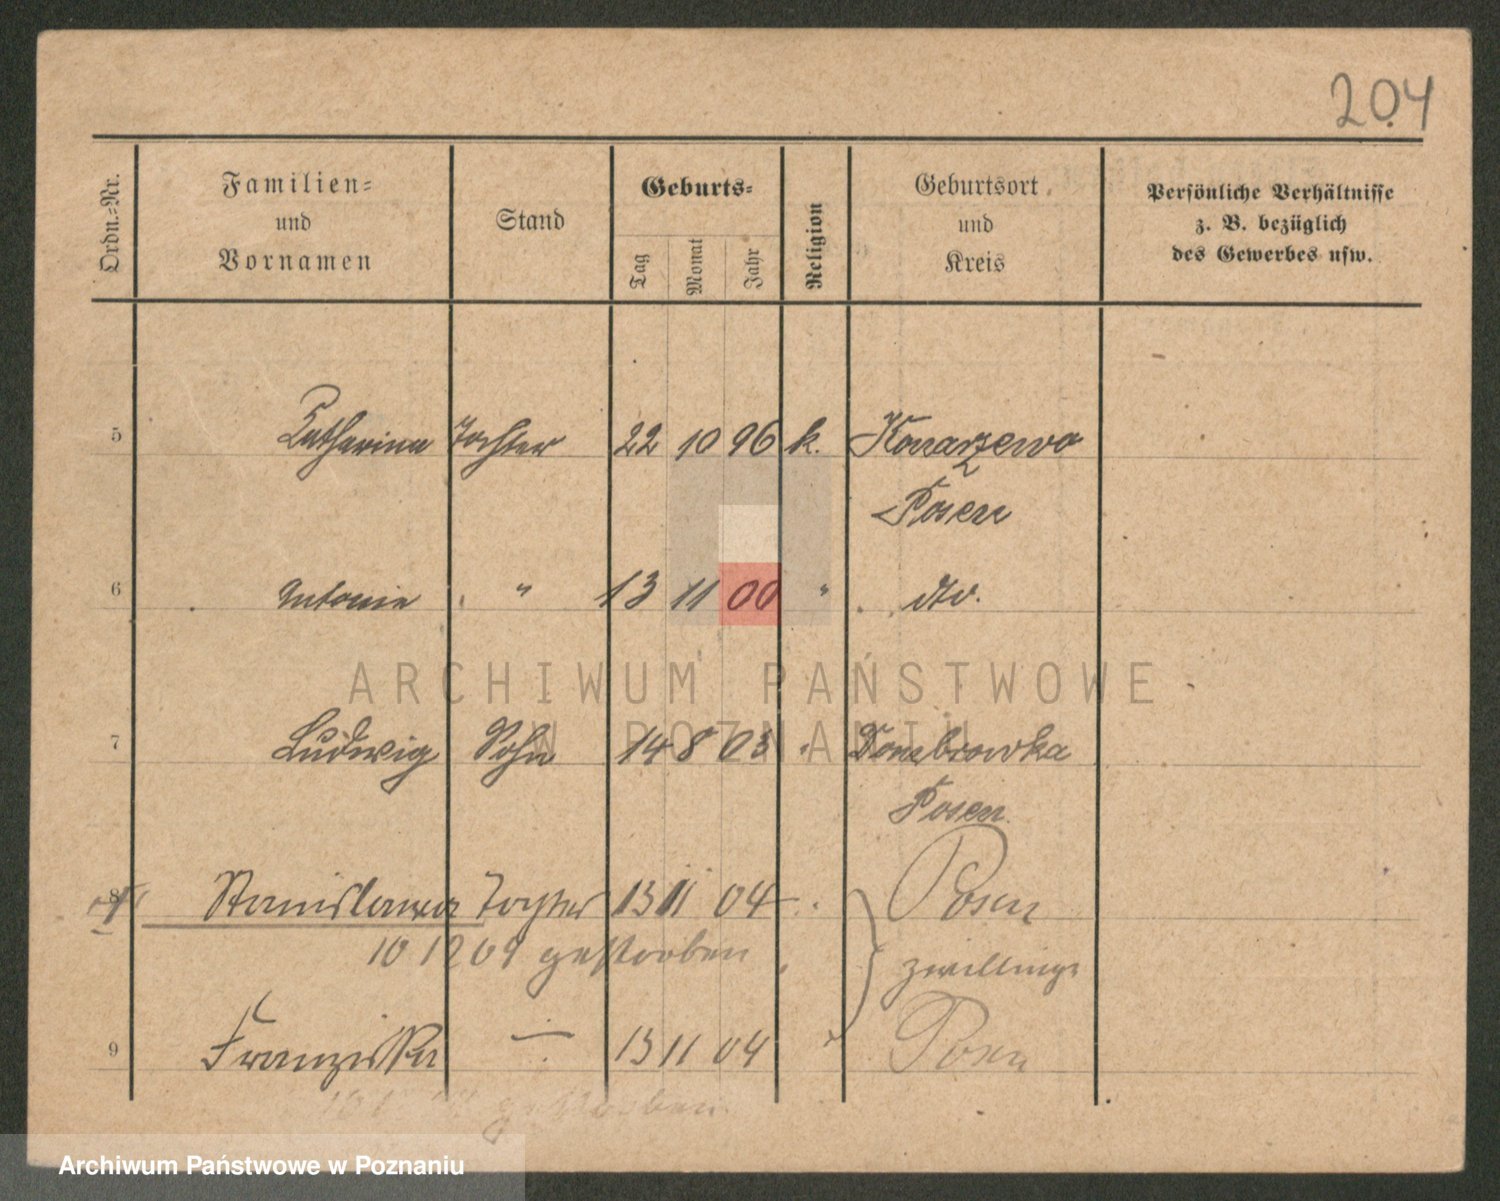 204
Ordn.-Nr.
Familien-
und
Vornamen
Stand
Geburts-
Tag
Monat
Jahr
Religion
Geburtsort
und
Kreis
Persönliche Verhältnisse
z. B. bezüglich
des Gewerbes usw.
5 Catharina Tochter 22 10 96 k. Konarzewo
Posen
6 Antonie " 13 11 00 " dto.
ARCHIWUM PAŃSTWOWE
W POZNANIU
7 Ludwig Sohn 14 8 03 " Dombrowka
Posen
8 Stanislawa Tochter 13 11 04 Posen
10 12 09 gestorben zwillinge
9 Franziska 13 11 04 Posen
gestorben
Archiwum Państwowe w Poznaniu